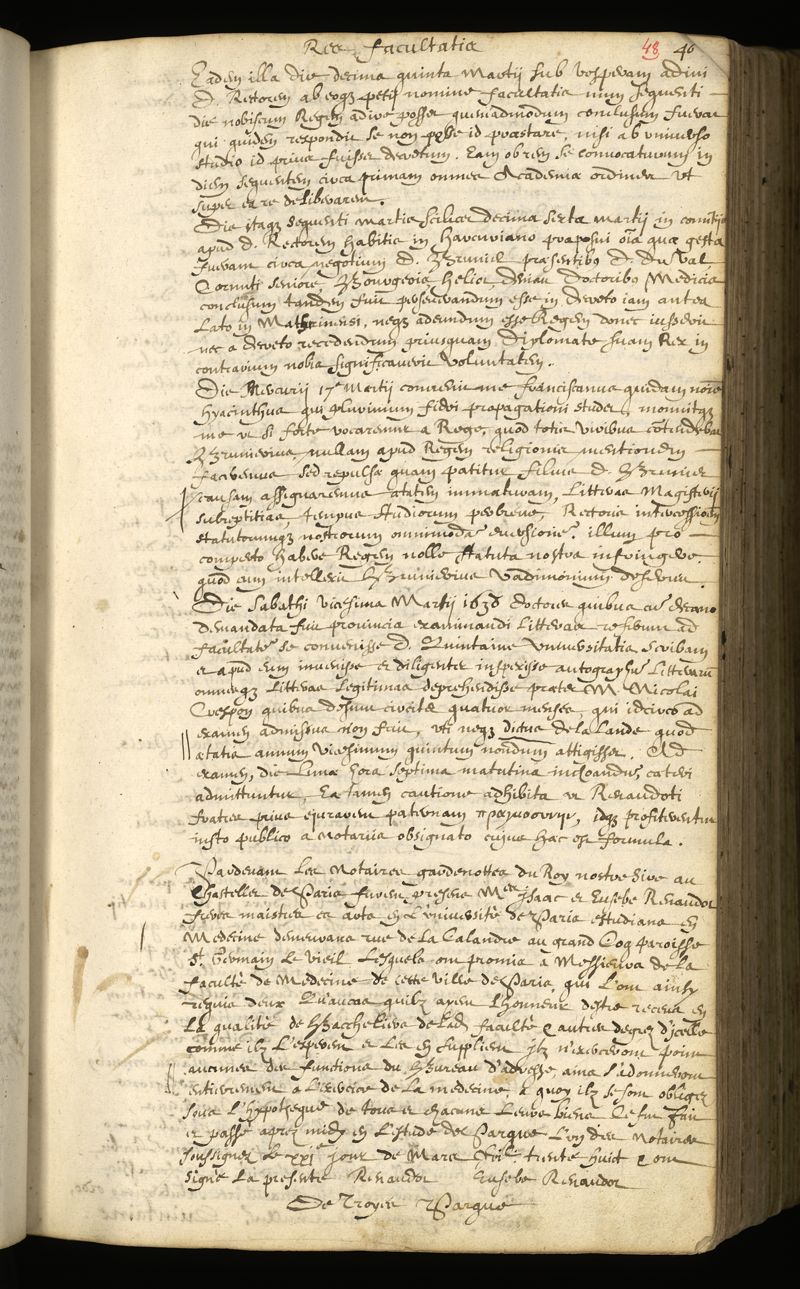 Res facultatis 48 46
Eadem illa die decima quinta Martij sub vesperam adivi
D. Rectorem ab eoq; petij nomine facultatis num sequenti
die nobiscum Regem adire posset quemadmodum conclusum fuerat
qui quidem respondit se non posse id praestare, nisi ab universo
studio id prius fuisset decretum. Eam ob rem se convocaturum in
diem sequentem circa primam omnes Academiae ordines ut
super ea re deliberarent.
Die itaq; sequenti Martis scilicet decima sexta Martij in comitijs
apud D. Rectorem habitis in Harcuriano proposui oīa quae gesta
fuerant circa negotium D. Brunier praesentibus D. Du Val
Cornuti seniore, Bourgeois, Helior, Deniau doctoribus Medicis
conclusum tandem fuit perseverandum esse in decreto iam antea
lato in Mathurinensi, neq; adeundum esse Regem donec iusserit
nec a decreto recedendum priusquam Diplomate suam Rex in
contrarium nobis significaverit voluntatem.
Die Mercurij 17ª Martij convenit me franciscanus quidam noīe
Hyacinthus qui plurimum fidei propagationi studet, monuitq;
me ut si forte vocaremur a Rege, quod totis viribus cōtendebat
Brunierius nullam apud Regem religionis mentionem
faceremus sed repulsae quam patitur filius D. Brunier
causam assignaremus aetatem immaturam, Litteras Magisterij
subreptitias, tempus studiorum perbreve, Rectoris intercessionem
statutorumq; nostrorum omnimodā eversionē. illum pro
comperto habere Regem nolle statuta nostra infringere
quod cum intellexit Brunierius vadimonium deseruit.
Die Sabathi vicesima Martij 1638 doctores quibus a decano
demandata fuit provincia examinandi litteras retulerunt ad
facultatē se convenisse D. Quintaine Universitatis scribam
et apud eum invenisse et diligenter inspexisse autographū litterarū
omnesq; litteras legitimas deprehendisse praeter M. Nicolai
Crespon quibus desunt circiter quatuor menses, qui idcirco ad
examen admissus non fuit, uti neq; dictus de la Lande quod
aetatis annum vicesimum quintum nondum attigisset. Ad
examen, die Lunae hora septima matutina inchoandum, caeteri
admittuntur, Ea tamen cautione adhibita ut Renaudoti
fratres prius ejurarent paternam πραγμοσύνην, idq; profiterentur
insto publico a Notariis obsignato cujus haec est formula.
Pardevant les Notaires gardenottes du Roy nostre sire au
Chastellet de Paris furent presens Mes Isaac et Eusebe Renaudot
freres maistres es arts en L'université de Paris estudians en
Medecine demeurans rue de la Calandre au grand Coq paroisse
St Germain le vieil Lesquels ont promis a Messieurs de la
faculté de Medecine de cette ville de Paris, qui l'ont ainsy
requis deux quavcas quilz ayent L'honneur d'estre receus en
la qualité de Baccheliers de lad. faculté & autres degrez d'icelle
comme ilz L'esperent et les en supplient Ilz n'exerceront point
aucunes des functions du Bureau d'adresse, ains s'adonneront
entierement a L'exercice de la medecine a quoy ilz se sont obligez
sous L'hypotheque de tous et chacuns leurs biens Ce fut fait
et passé aprez midy en L'estude de Parque L'un des Notaires
soussignez le xxje jour de Mars trente huict & ont
signé La presente Renaudot Eusebe Renaudot
De Troyes Parque